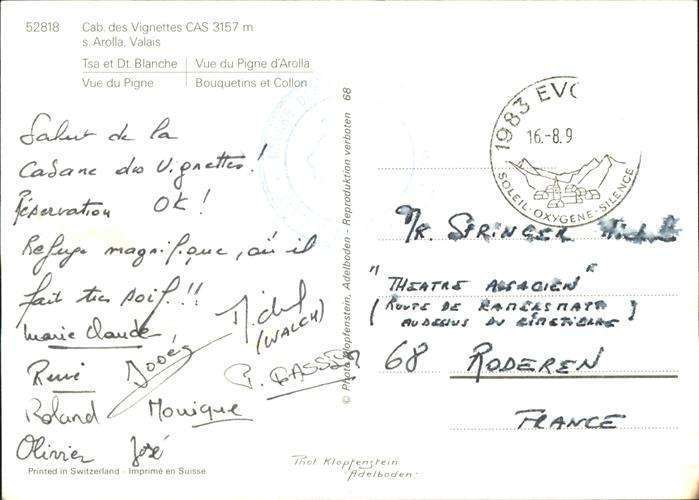 52818 Cab. des Vignettes CAS 3157 m
s. Arolla, Valais
Tsa et Dt. Blanche Vue du Pigne d'Arolla
Vue du Pigne Bouquetins et Collon
Salut de la
Cabane des Vignettes!
Réservation OK!
Refuge magnifique, où il
fait très soif!!
Marie Claude Michel
(WALCH)
René
Roland Monique
Olivier José
Printed in Switzerland - Imprimé en Suisse
© Photo Klopfenstein, Adelboden - Reproduktion verboten 68
Phot Klopfenstein
Adelboden
1983 EVO
16.-8.9
SOLEIL-OXYGÈNE-SILENCE
Mr. SPRINGER
"THEATRE ALSACIEN"
(ROUTE DE RAMERSMATT
AU DESSUS DU CIMETIERE)
68 RODEREN
FRANCE